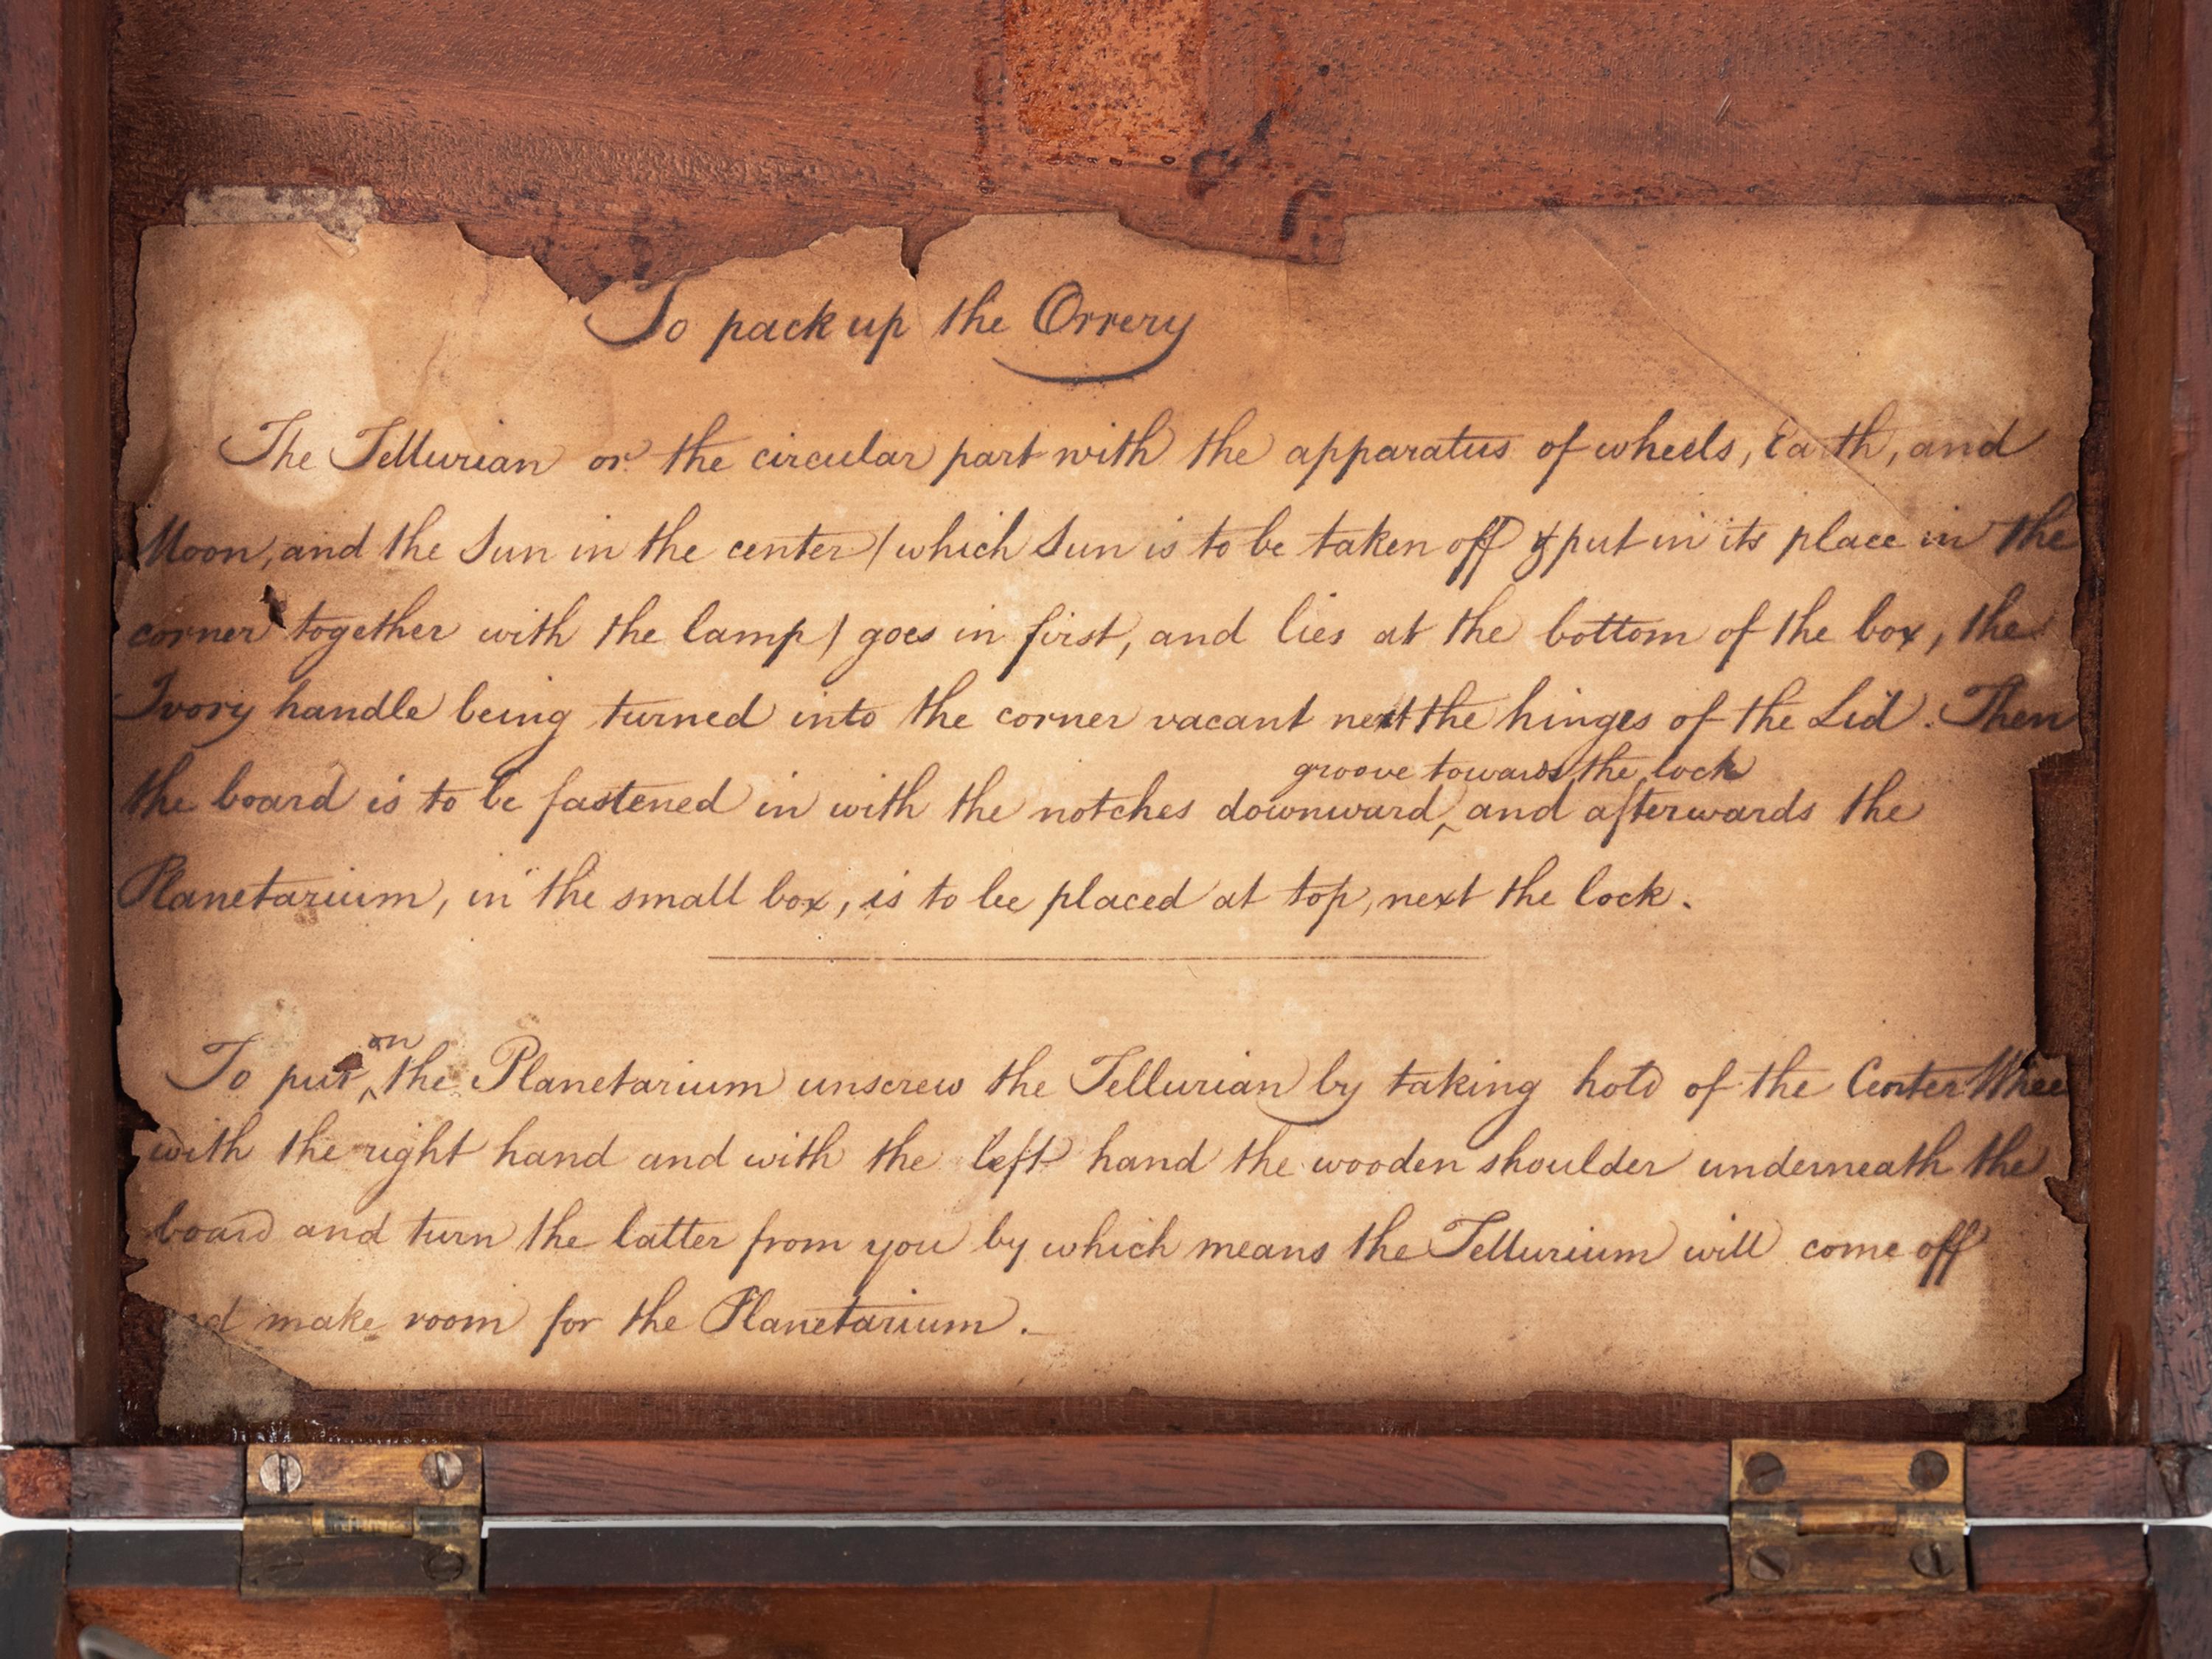 To pack up the Orrery
The Tellurian or the circular part with the apparatus of wheels, Earth, and
Moon, and the Sun in the center / which Sun is to be taken off & put in its place in the
corner together with the lamp / goes in first, and lies at the bottom of the box, the
Ivory handle being turned into the corner vacant next the hinges of the Lid. Then
groove towards the lock
the board is to be fastened in with the notches downward, ^ and afterwards the
Planetarium, in the small box, is to be placed at top, next the lock.
on
To put ^ the Planetarium unscrew the Tellurian by taking hold of the Center Whee
with the right hand and with the left hand the wooden shoulder underneath the
board and turn the latter from you by which means the Tellurium will come off
nd make room for the Planetarium.